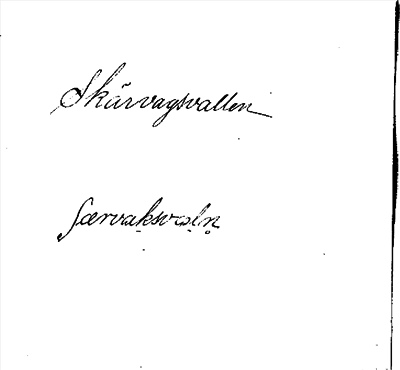 Skärvagsvallen
ʃærvak̩svəl̩n̥